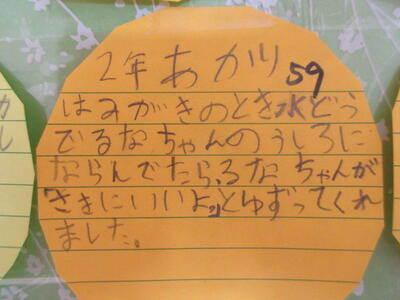 2年 あかり 59
はみがきのとき水どう
でるなちゃんのうしろに
ならんでたら、るなちゃんが
「さきにいいよ。」とゆずってくれ
ました。